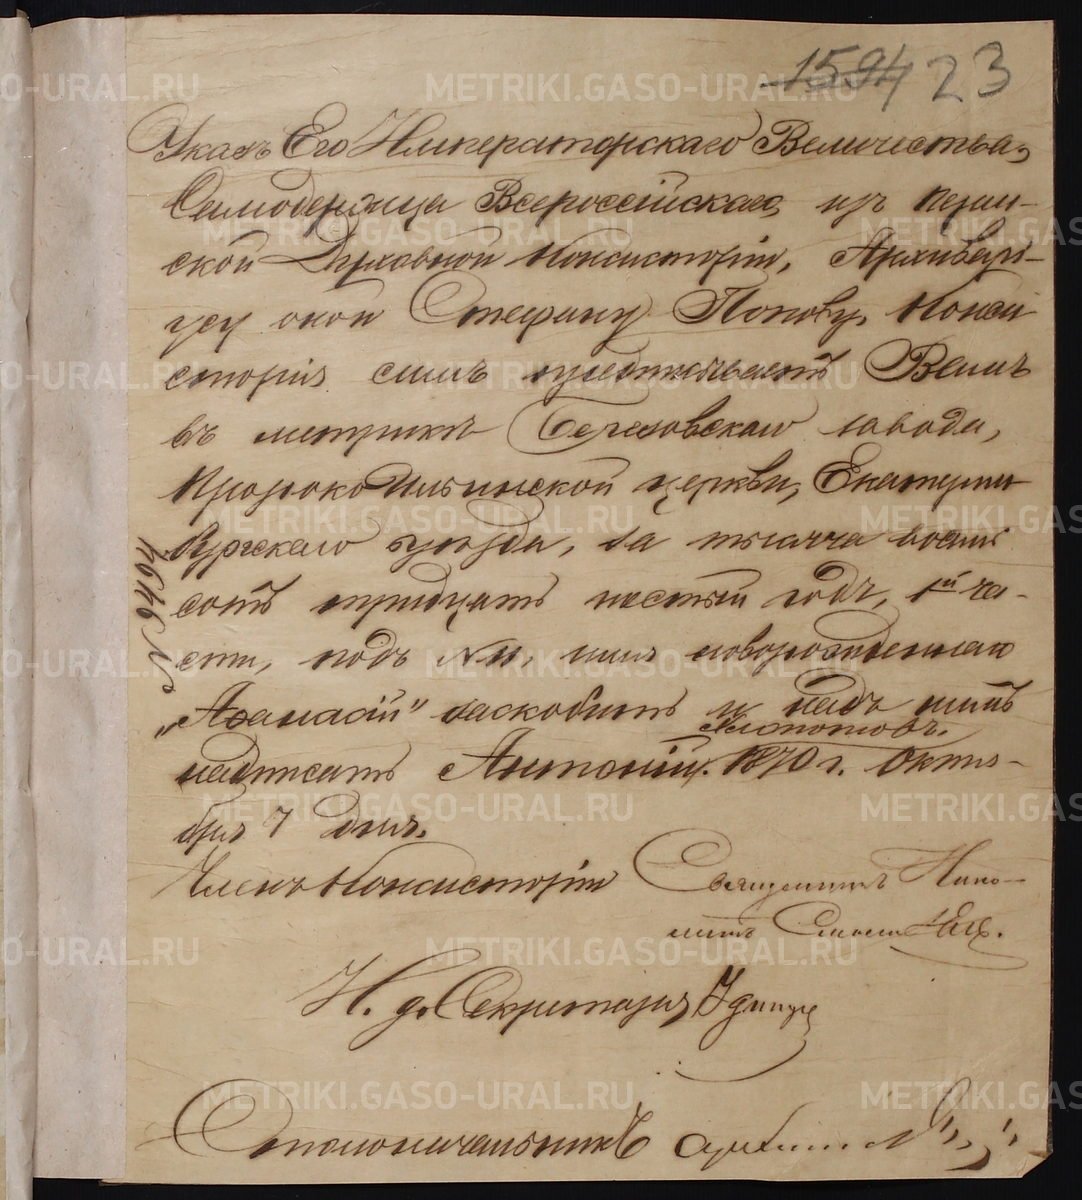 1594 23
Указъ Его Императорскаго Величества,
Самодержца Всероссійскаго, изъ Перм-
ской Духовной Консисторіи, Архиваріу-
усу оной Стефану Попову. Конси
сторія симъ предписываетъ Вамъ
въ метрикѣ Березовскаго завода,
Пророко Ильинской церкви, Екатерин
бургскаго уѣзда, за тысяча восемь
сотъ тридцать шестый годъ, 1й ча-
сти, подъ № 11, имя новорожденнаго
„Аѳанасій" заскобить и надъ нимъ
надписать Антоній. 1870 г. Октя-
бря 7 дня.
№ 9494
Членъ Консисторіи Священникъ Иппо-
литъ
И. д. Секретаря
Столоначальникъ
METRIKI.GASO-URAL.RU